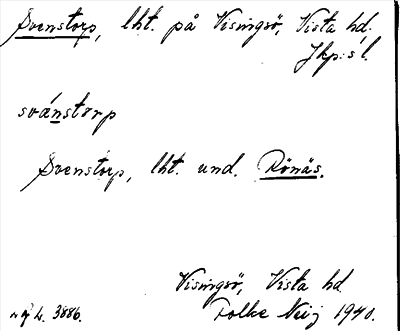 Svenstorp, lht. på Visingsö, Vista hd.
Jkp:s l.
svä́nstorp
Svenstorp, lht. und. Rönäs.
Visingsö, Vista hd
3886. Folke Neij 1940.